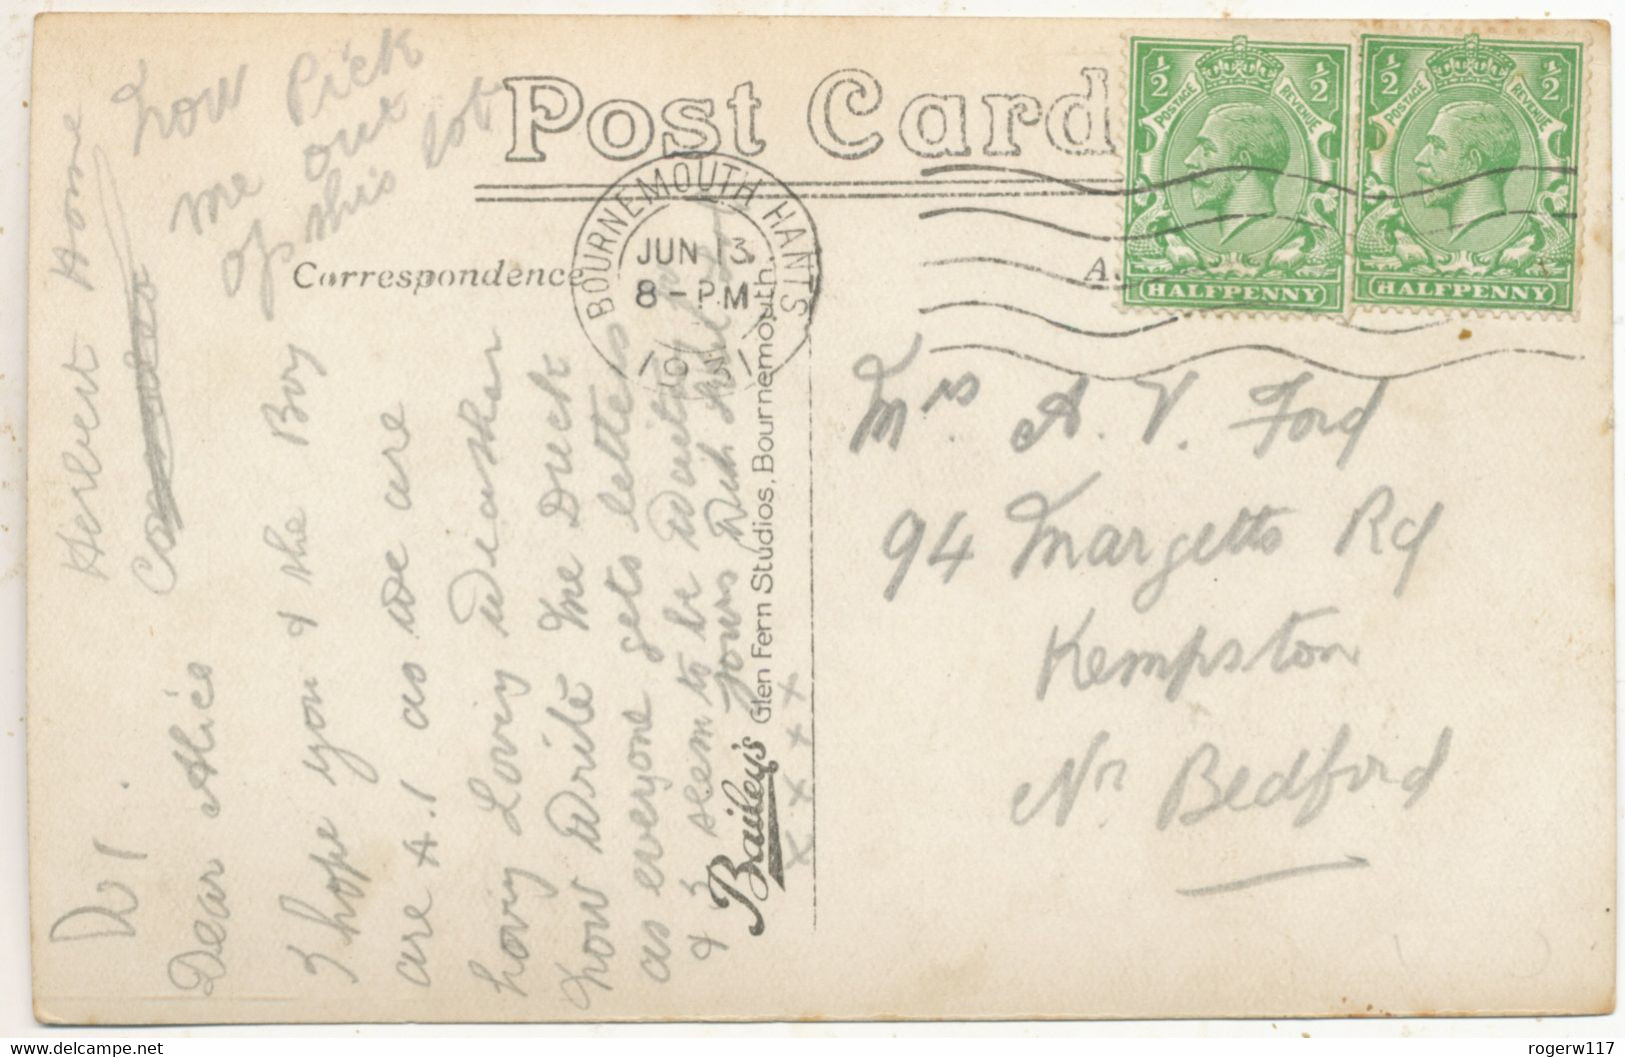 Post Card
Correspondence
BOURNEMOUTH HANTS
JUN 13
8-PM
½ ½
POSTAGE REVENUE
HALFPENNY
½ ½
POSTAGE REVENUE
HALFPENNY
Now Pick
me out
of this lot
Herbert Home
Dear Alice
I hope you & the Boy
are A.1 as we are
having Lovly Weather
now Write me Duck
as everyone gets letters
& I seem to be Waiting for
yours
x x x x x
Bailey's Glen Fern Studios, Bournemouth.
Mrs A. V. Ford
94 Margetts Rd
Kempston
Nr Bedford
rogerw117